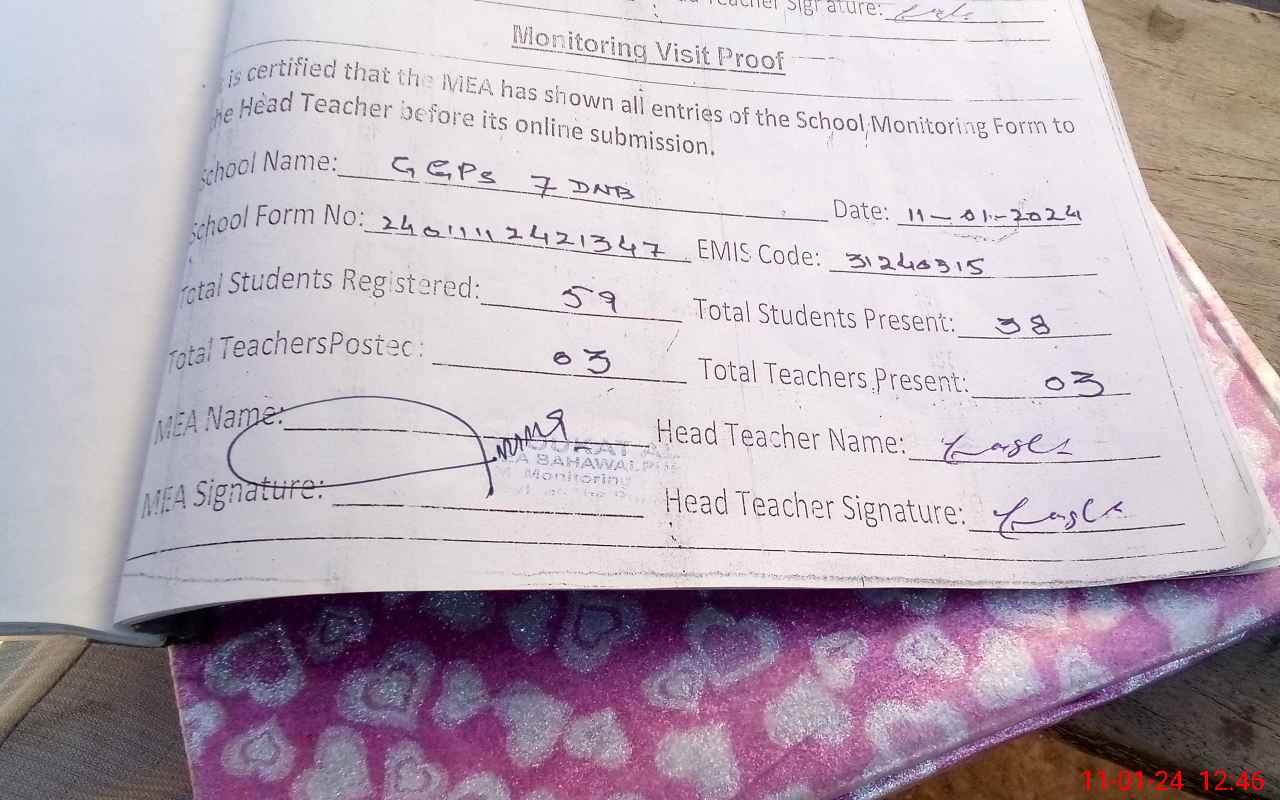 Teacher Signature:
Monitoring Visit Proof
is certified that the MEA has shown all entries of the School Monitoring Form to
the Head Teacher before its online submission.
School Name: GGPS 7 DNB Date: 11-01-2024
School Form No: 24011112421347 EMIS Code: 31240315
Total Students Registered: 59 Total Students Present: 38
Total Teachers Posted: 03 Total Teachers Present: 03
MEA Name: Head Teacher Name:
BAHAWALPUR
Monitoring
MEA Signature: Head Teacher Signature:
11-01-24 12:46